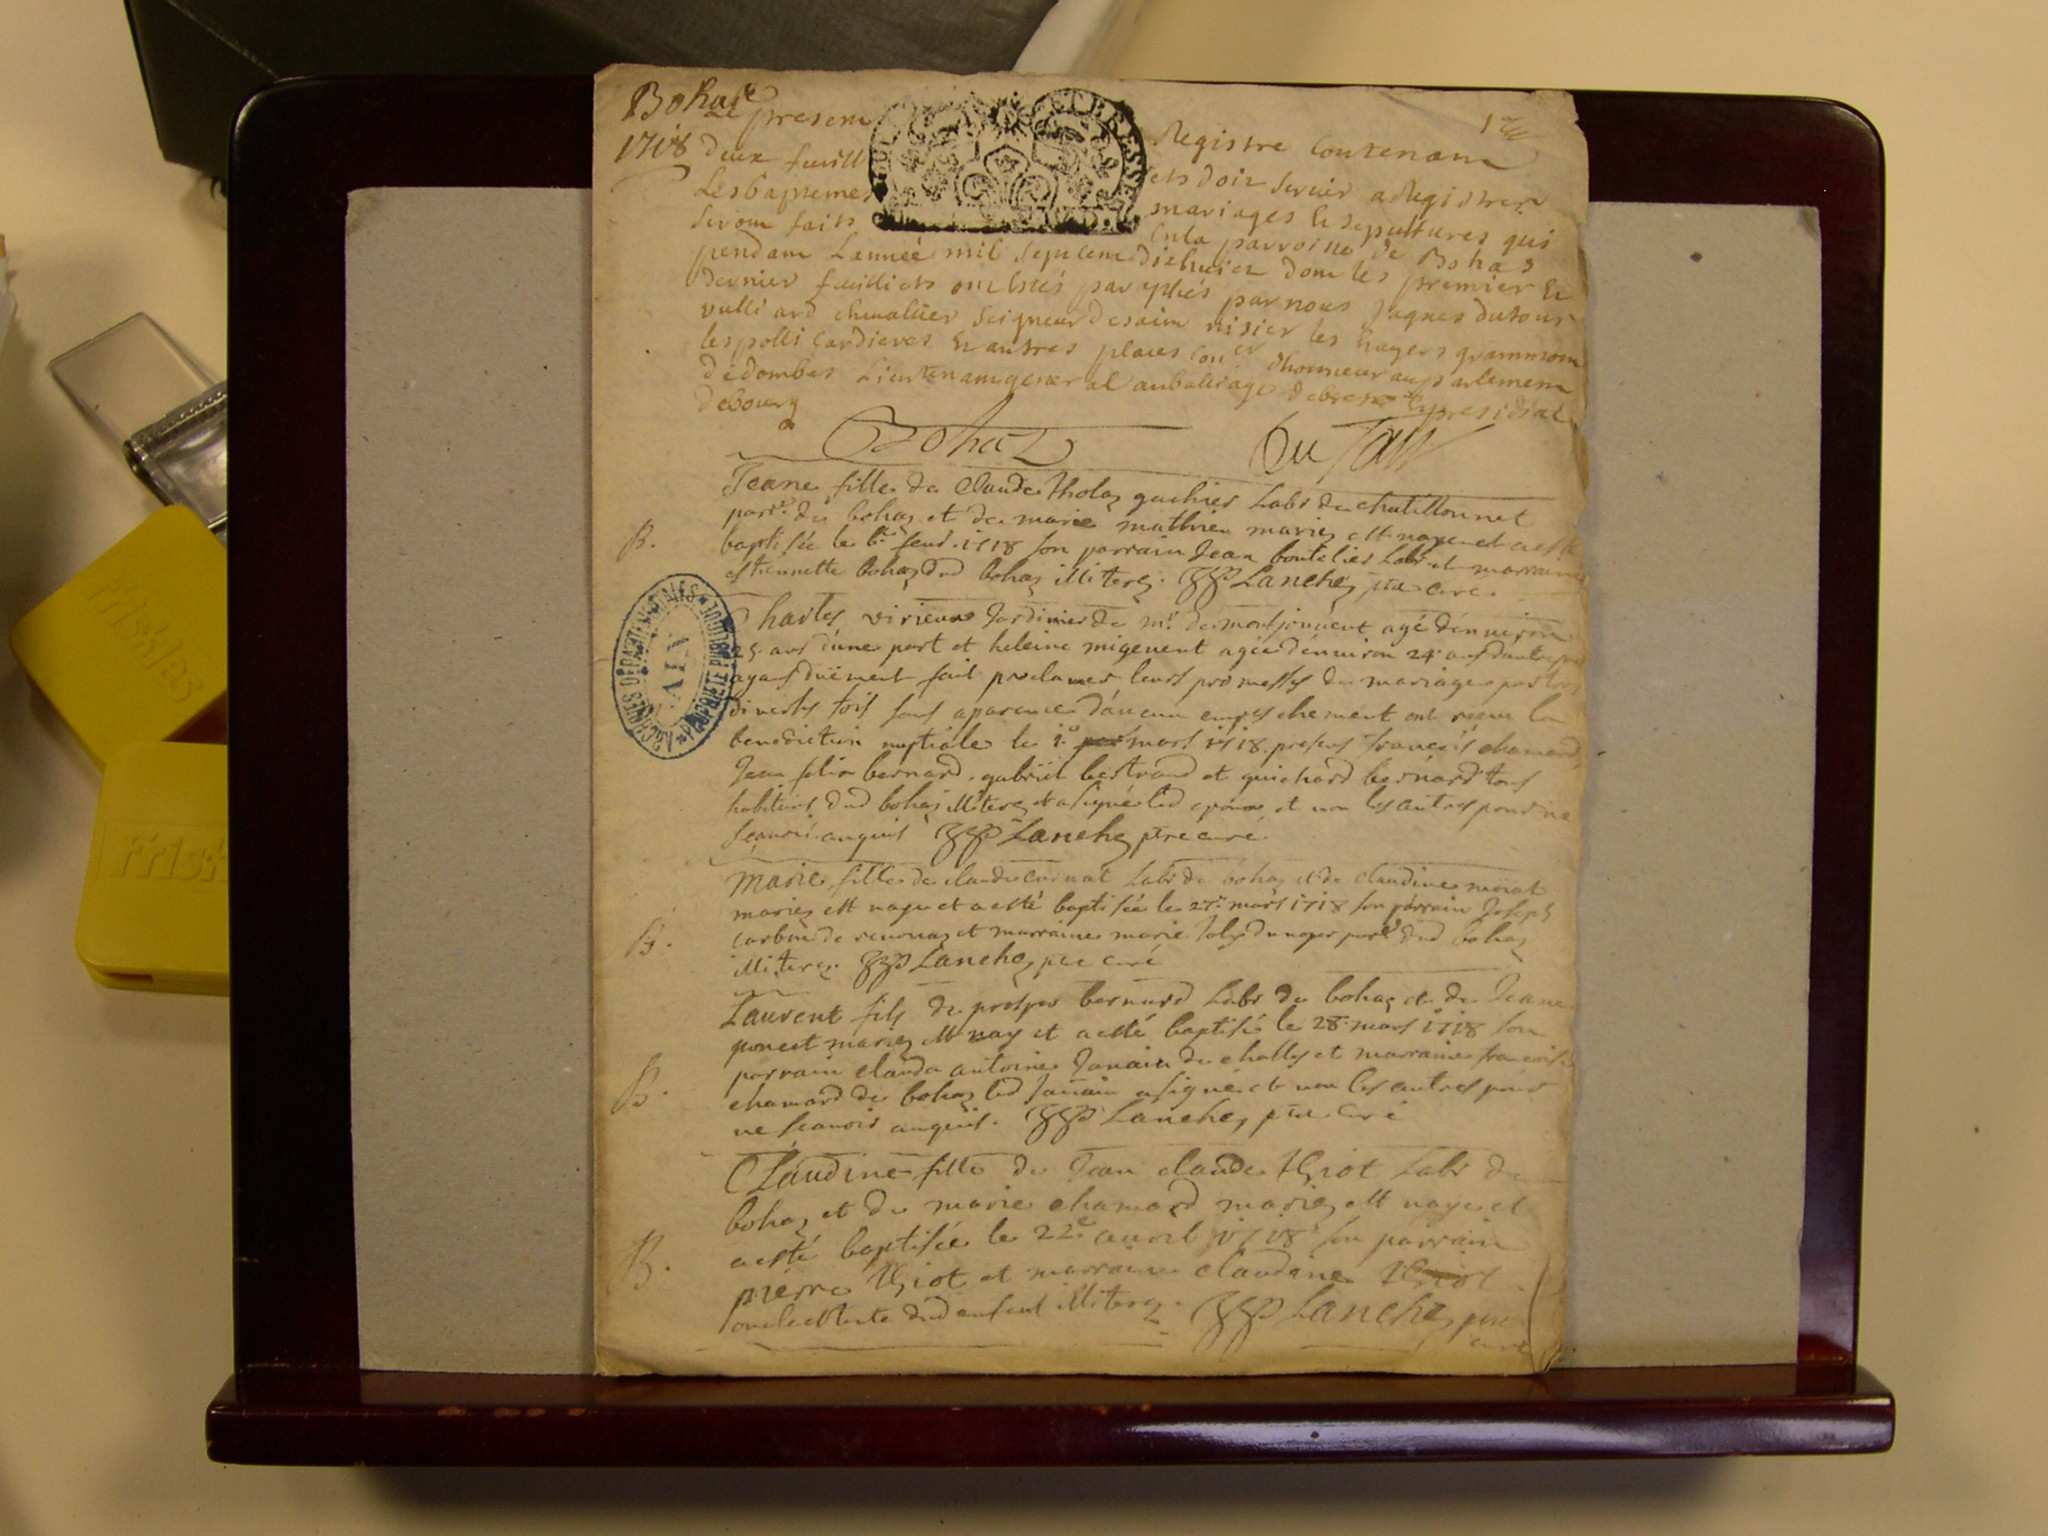 Bohas
1718
1
Le present Registre Contenant
deux feuill ets doit servir a Registrer
Les baptemes mariages Et sepultures qui
seront faits En la parroisse de Bohas
pendant L'année mil sept cent dixhuict dont les premier Et
dernier feuillets ont estés paraphés par nous Jaques dutour
vulliard chevallier Seigneur de saint nisier les
les polli Cardieres Et autres places Con.er d'honneur au parlement
de dombes Lieutenant general au balliage de bresse Et presidial
de bourg
Bohaz
Du Tour
Jeane fille de Claude tholaz Labr de chatillonnet
parr.e de bohaz et de marie mathieu mariez est naye et a esté
B.
baptisée le 6.e feur. 1718 son parrain Jean boutelier Labr et marraine
estiennette bohaz dud bohaz illiterez. Lanchez ptre curé.
Charles virieux Jardinier de mr. de montjouvent agé d'environ
25 ans d'une part et heleine migevent agée d'environ 24 ans d'autre part
ayans düement fait proclamer leurs promesses de mariage par trois
diverses fois sans aparence d'aucun empeschement ont receu la
benediction nuptiale le 1.e mars 1718. presens françois chamard,
Jean felix bernard, gabriel bertrand et guichard bernard tous
habitans dud bohaz illiterez et a signé led epoux et non les autres pour ne
scavoir enquis Lanchez ptre curé.
Marie fille de claude Labr de bohaz et de claudine morat
mariez est naye et a esté baptisée le 27.e mars 1718 son parrain Joseph
B.
de et marraine marie Joly du noyer parr.e dud bohaz
illiterez. Lanchez ptre curé
Laurent fils de prosper bernard Labr de bohaz et de Jeane
poncet mariez est nay et a esté baptisé le 28. mars 1718 son
parrain claude antoine Janain de challes et marraine françoise
B.
chamard de bohaz led Janain a signé et non les autres pour
ne scavoir enquis. Lanchez ptre curé
Claudine fille de Jean claude Labr de
bohaz et de marie chamard mariez est naye et
a esté baptisée le 22.e avril 1718 son parrain
B.
pierre et marraine claudine
oncle et tante dud enfant illiterez. Lanchez ptre
curé
ARCHIVES DEPARTEMENTALES
AIN